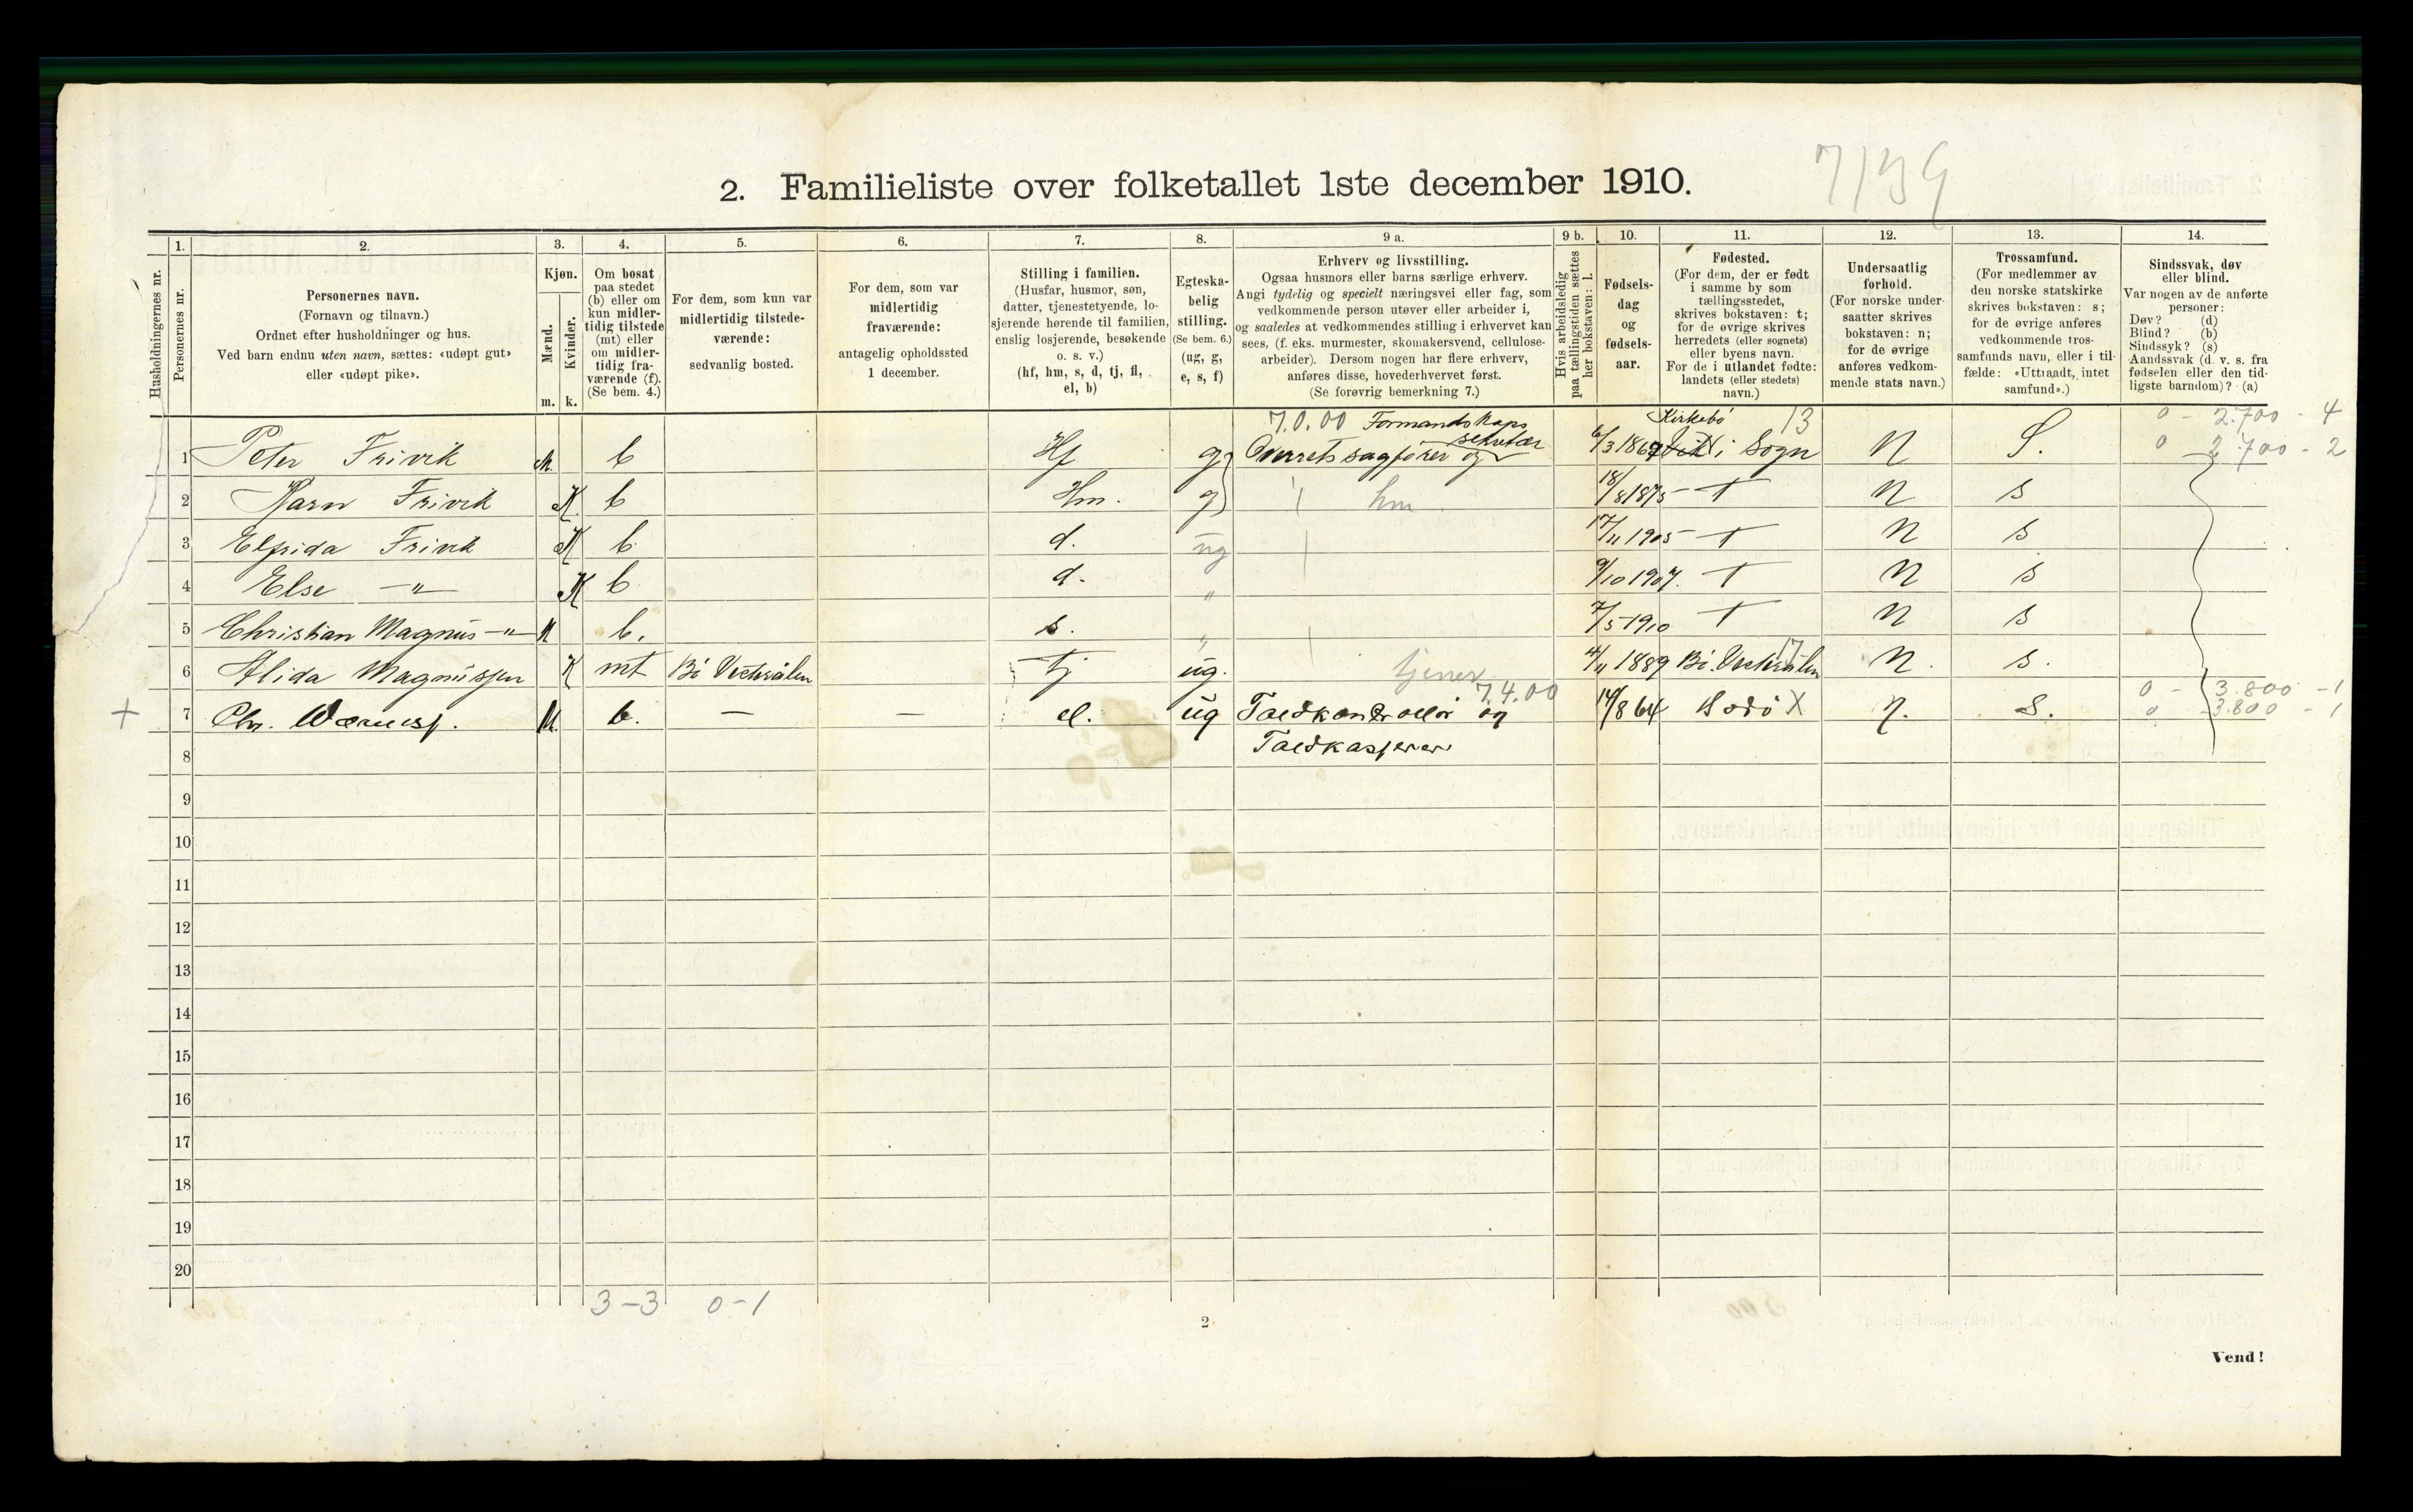 2. Familieliste over folketallet 1ste december 1910.
7139
Husholdningernes nr.
1. Personernes nr.
2. Personernes navn.
(Fornavn og tilnavn.)
Ordnet efter husholdninger og hus.
Ved barn endnu uten navn, sættes: «udøpt gut»
eller «udøpt pike».
3. Kjøn.
Mænd. Kvinder.
m. k.
4. Om bosat
paa stedet
(b) eller om
kun midler-
tidig tilstede
(mt) eller
om midler-
tidig fra-
værende (f).
(Se bem. 4.)
5. For dem, som kun var
midlertidig tilstede-
værende:
sedvanlig bosted.
6. For dem, som var
midlertidig
fraværende:
antagelig opholdssted
1 december.
7. Stilling i familien.
(Husfar, husmor, søn,
datter, tjenestetyende, lo-
sjerende hørende til familien,
enslig losjerende, besøkende
o. s. v.)
(hf, hm, s, d, tj, fl,
el, b)
8. Egteska-
belig
stilling.
(Se bem. 6.)
(ug, g,
e, s, f)
9 a. Erhverv og livsstilling.
Ogsaa husmors eller barns særlige erhverv.
Angi tydelig og specielt næringsvei eller fag, som
vedkommende person utøver eller arbeider i,
og saaledes at vedkommendes stilling i erhvervet kan
sees, (f. eks. murmester, skomakersvend, cellulose-
arbeider). Dersom nogen har flere erhverv,
anføres disse, hovederhvervet først.
(Se forøvrig bemerkning 7.)
9 b. Hvis arbeidsledig
paa tællingstiden sættes
her bokstaven: l.
10. Fødsels-
dag
og
fødsels-
aar.
11. Fødested.
(For dem, der er født
i samme by som
tællingsstedet,
skrives bokstaven: t;
for de øvrige skrives
herredets (eller sognets)
eller byens navn.
For de i utlandet fødte:
landets (eller stedets)
navn.)
12. Undersaatlig
forhold.
(For norske under-
saatter skrives
bokstaven: n;
for de øvrige
anføres vedkom-
mende stats navn.)
13. Trossamfund.
(For medlemmer av
den norske statskirke
skrives bokstaven: s;
for de øvrige anføres
vedkommende tros-
samfunds navn, eller i til-
fælde: «Uttraadt, intet
samfund».)
14. Sindssvak, døv
eller blind.
Var nogen av de anførte
personer:
Døv? (d)
Blind? (b)
Sindssyk? (s)
Aandssvak (d. v. s. fra
fødselen eller den tid-
ligste barndom)? (a)
7.0.00 Formandskaps Kirkebø 13 0 - 2.700 - 4
1 Peter Frivik M b Hf g Overretssagfører og sekretær 6/3 1867 Vik i Sogn N S. 0 2.700 - 2
2 Karn Frivik K b Hm. g hm 18/8 1875 T N s
3 Elfrida Frivik K b d. ug 17/11 1905 T N s
4 Else —"— K b d. " 9/10 1907. T N s
5 Christian Magnus —"— M b. s. " 7/5 1910 T N s
6 Alida Magnussen K mt Bö Vesterålen tj ug. tjener 4/11 1889 Bö. Vesterålen 17 N. s.
7.4.00 0 - 3.800 - 1
+ 7 Chr. M b. — — el. ug Toldkontrollør og 14/8 64 Bodö X n. S. 0 3.800 - 1
8 Toldkasserer
9
10
11
12
13
14
15
16
17
18
19
20
3 - 3 0 - 1
2
Vend!